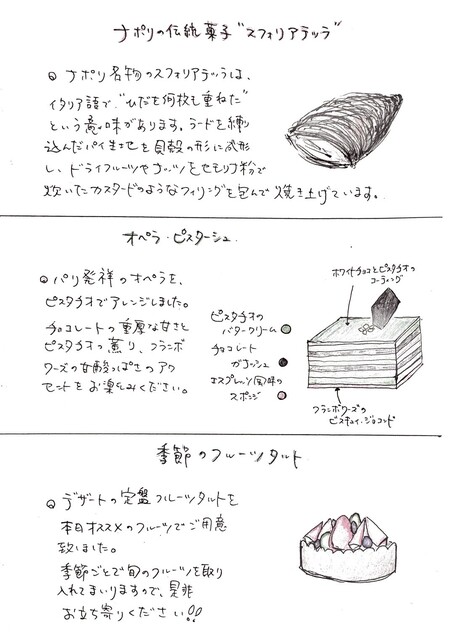 ナポリの伝統菓子"スフォリアテッラ"
ナポリ名物のスフォリアテッラは、
イタリア語で"ひだを何枚も重ねた"
という意味があります。ラードを練り
込んだパイ生地を貝殻の形に成形
し、ドライフルーツやナッツをセモリナ粉で
炊いたカスタードのようなフィリングを包んで焼き上げています。
オペラ・ピスターシュ
パリ発祥のオペラを、
ピスタチオでアレンジしました。
チョコレートの重厚な甘さと
ピスタチオの薫り、フランボ
ワーズの甘酸っぱさのアク
セントをお楽しみください。
ホワイトチョコとピスタチオの
コーティング
ピスタチオの
バタークリーム
チョコレート
ガナッシュ
エスプレッソ風味の
スポンジ
フランボワーズの
ビスキュイ・ジョコンド
季節のフルーツタルト
デザートの定盤フルーツタルトを
本日オススメのフルーツでご用意
致しました。
季節ごとで旬のフルーツを取り
入れてまいりますので、是非
お立ち寄りください!!